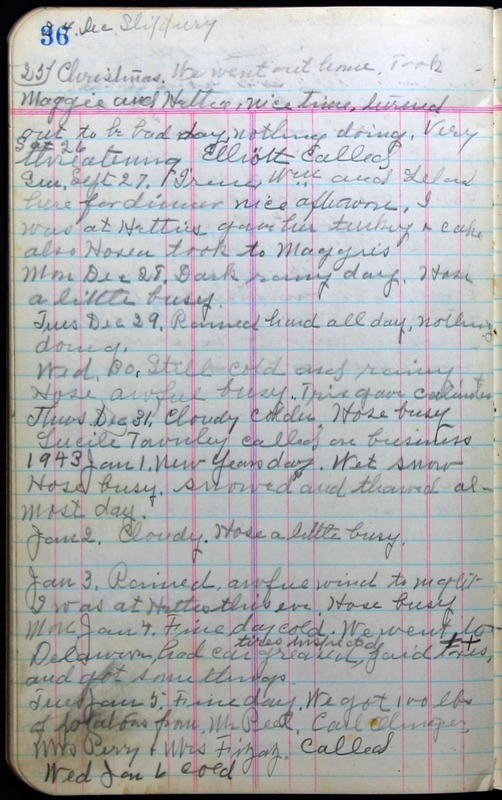 36
24 Dec Slippery
25, Christmas. We went out home. Took
Maggie and Hettie, nice time, turned
out to be bad day, nothing doing. Very
Sat 26
threatening Elliott Called
Sun, Sept 27. Irene, Will and Leland
here for dinner nice afternoon, I
was at Hetties gave her turkey & cake
also Hosea took to Maggies
Mon Dec 28 Dark rainy day. Hose
a little busy.
Tues Dec 29. Rained hard all day, nothing
doing.
Wed. 30, Still cold and rainy
Hose awful busy. gave calendars
Thurs Dec 31, Cloudy colder, Hose busy
Lucile Townley called on business
1943 Jan 1. New Years day. Wet snow
Hose busy. snowed and thawed al-
most day.
Jan 2. Cloudy. Hose a little busy.
Jan 3. Rained, awful wind to night
I was at Hetties this eve, Hose busy
Mon, Jan 4. Fine day cold. We went to
tires inspected
Delaware, had car greased, paid taxes,
and got some things.
Tues Jan 5. Fine day. We got 100 lbs
of potatoes from Mr Peat. Carl
Mrs Perry & Mrs Called
Wed Jan 6 cold